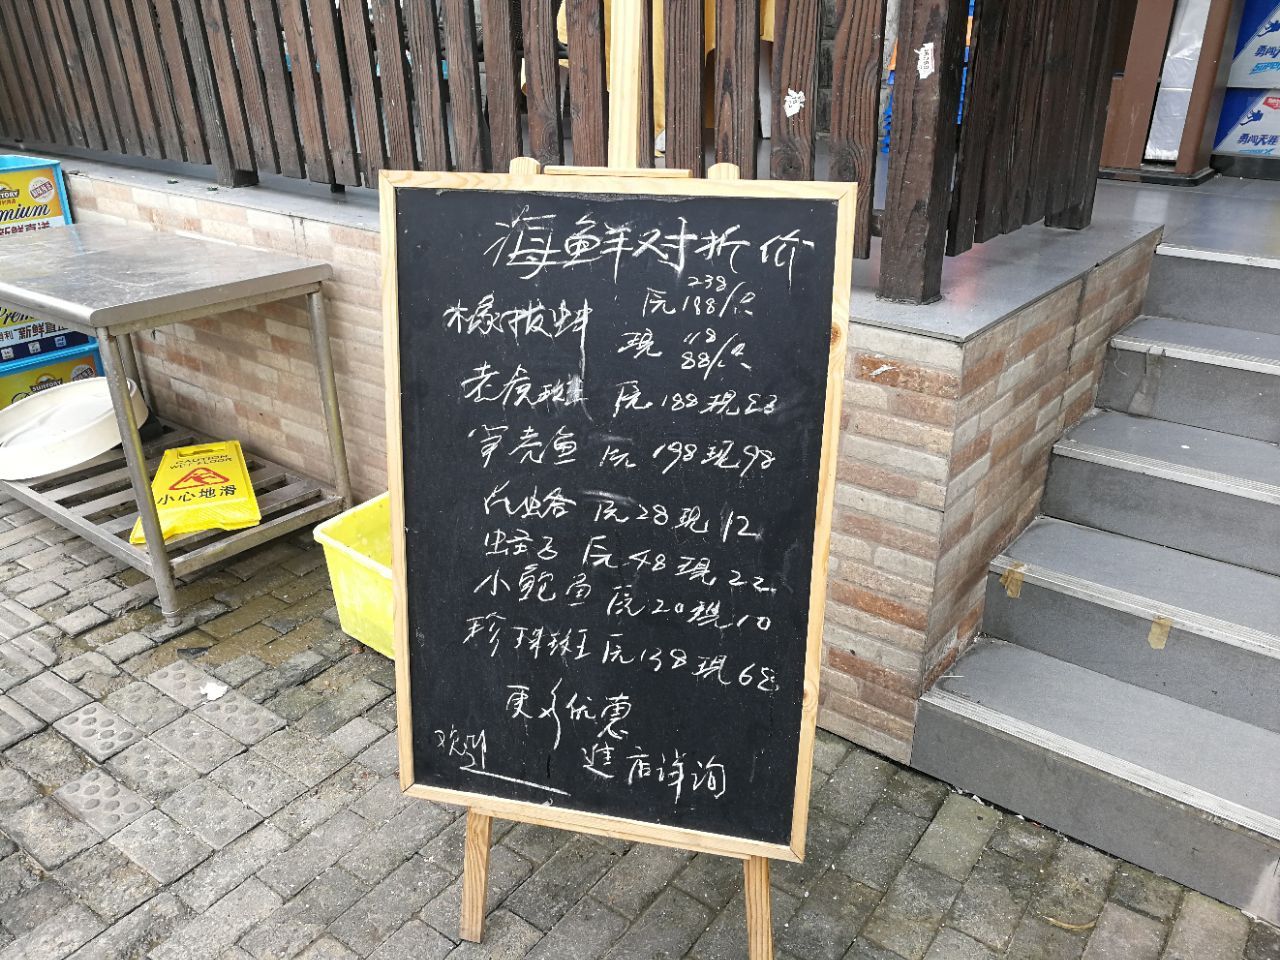 海鲜对折价
238
橡拔蚌 原188/位
118
现 88/位
老虎斑 原188现88
笋壳鱼 原198现98
花蛤 原28现12
蛏子 原48现22
小鲍鱼 原20现10
珍珠斑 原138现68
更多优惠
欢迎 進店详询
CAUTION
WET FLOOR
小心地滑
SUNTORY
Premium
新鲜直送
勇闯天涯
勇闯天涯